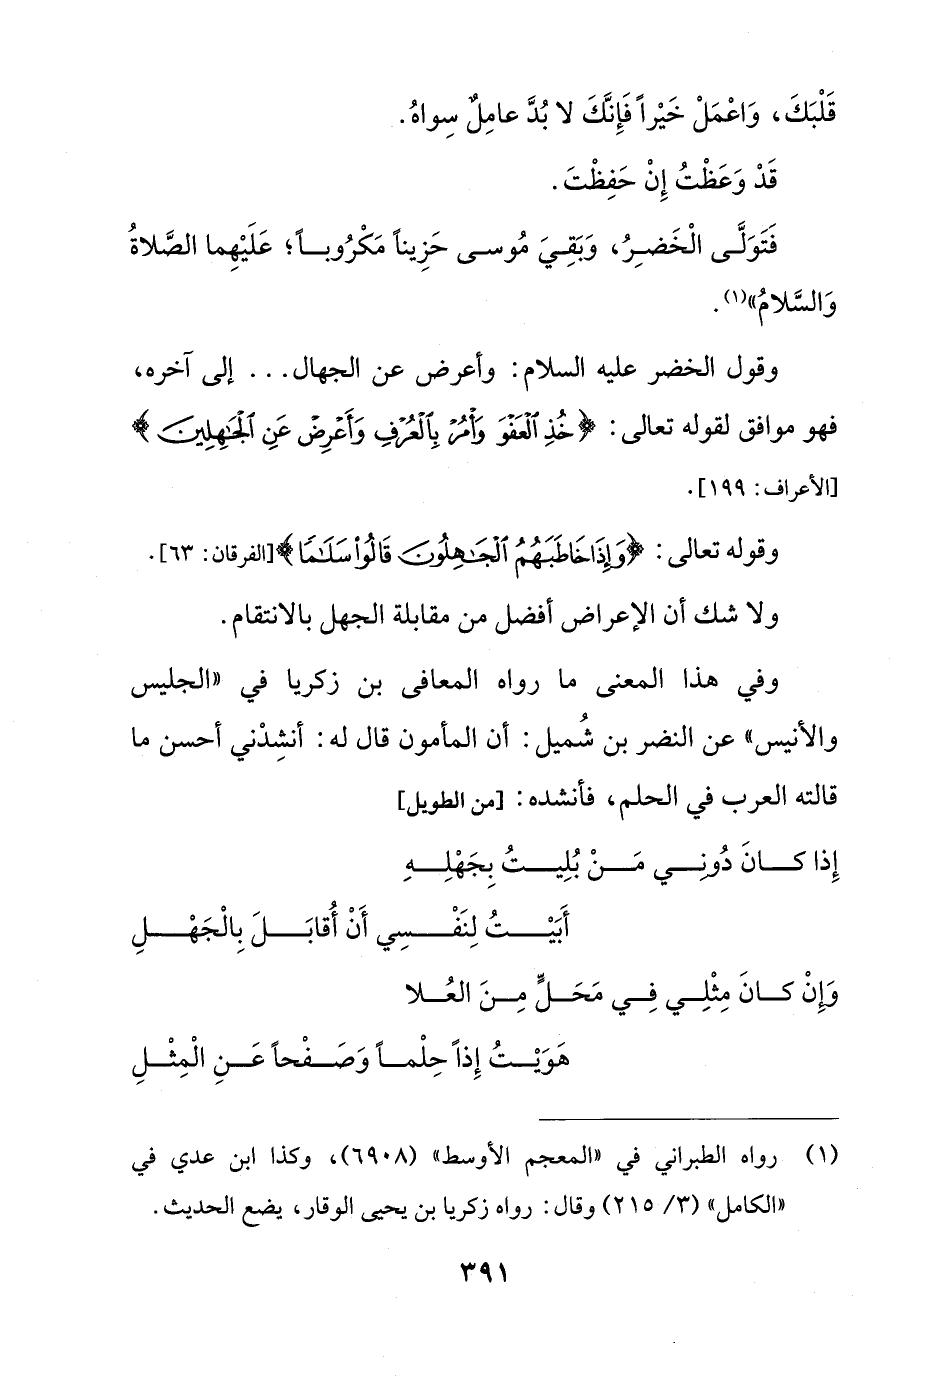 قَلْبَكَ، وَاعْمَلْ خَيْراً فَإِنَّكَ لا بُدَّ عامِلٌ سِواهُ.
قَدْ وَعَظْتُ إِنْ حَفِظْتَ.
فَتَوَلَّى الْخَضِرُ، وَبَقِيَ مُوسى حَزِيناً مَكْرُوباً؛ عَلَيْهِما الصَّلاةُ
وَالسَّلامُ»(١).
وقول الخضر عليه السلام: وأعرض عن الجهال... إلى آخره،
فهو موافق لقوله تعالى: ﴿خُذِ ٱلْعَفْوَ وَأْمُرْ بِٱلْعُرْفِ وَأَعْرِضْ عَنِ ٱلْجَٰهِلِينَ﴾
[الأعراف: ١٩٩].
وقوله تعالى: ﴿وَإِذَا خَاطَبَهُمُ ٱلْجَٰهِلُونَ قَالُوا۟ سَلَٰمًا﴾[الفرقان: ٦٣].
ولا شك أن الإعراض أفضل من مقابلة الجهل بالانتقام.
وفي هذا المعنى ما رواه المعافى بن زكريا في «الجليس
والأنيس» عن النضر بن شُميل: أن المأمون قال له: أنشِدْني أحسن ما
قالته العرب في الحلم، فأنشده: [من الطويل]
إِذا كانَ دُونِي مَنْ بُلِيتُ بِجَهْلِهِ
أَبَيْتُ لِنَفْسِي أَنْ أُقابَلَ بِالْجَهْلِ
وَإِنْ كانَ مِثْلِي فِي مَحَلٍّ مِنَ العُلا
هَوَيْتُ إِذاً حِلْماً وَصَفْحاً عَنِ الْمِثْلِ
(١) رواه الطبراني في «المعجم الأوسط» (٦٩٠٨)، وكذا ابن عدي في
«الكامل» (٣/ ٢١٥) وقال: رواه زكريا بن يحيى الوقار، يضع الحديث.
٣٩١